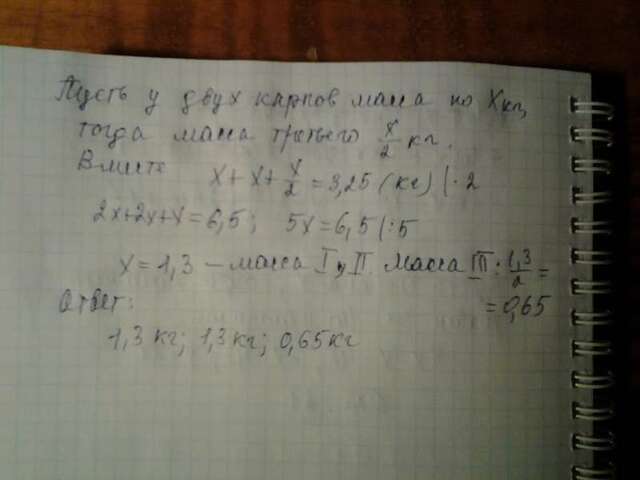 Пусть у двух карпов масса по X кг,
тогда масса третьего x/2 кг.
Вместе X + X + X/2 = 3,25 (кг) | · 2
2X+2X+X=6,5; 5X=6,5 |:5
X = 1,3 – масса I и II. Масса III: 1,3/2 =
= 0,65
Ответ:
1,3 кг; 1,3 кг; 0,65 кг